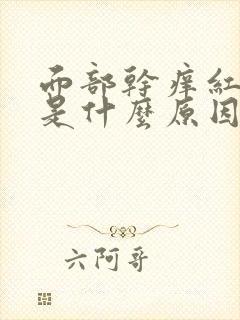 面部幹癢紅
是什麼原因
六阿哥